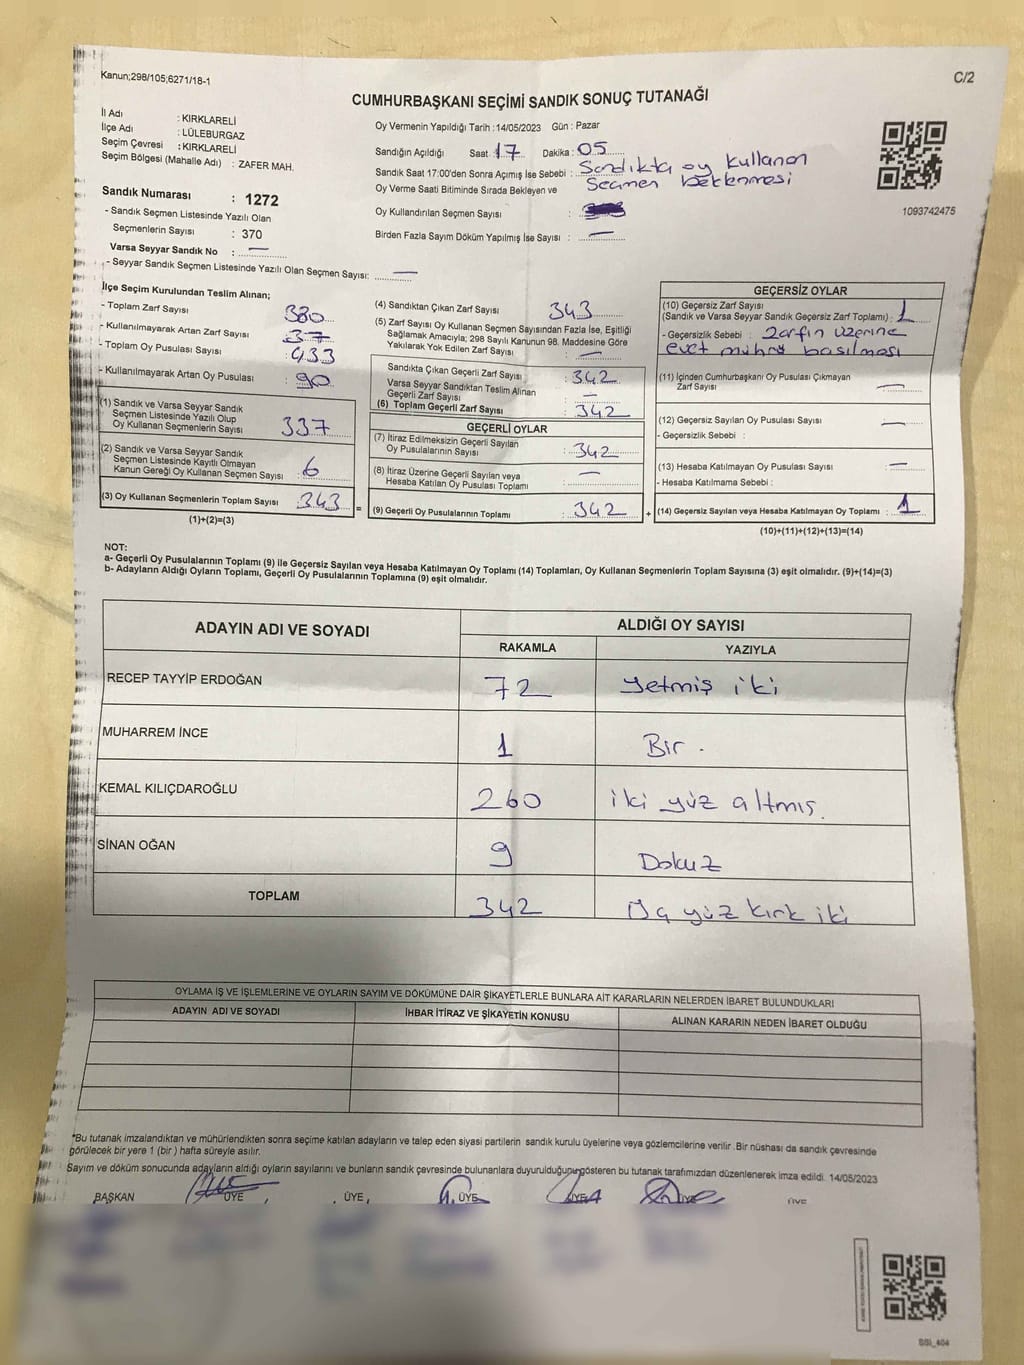 Kanun;298/105;6271/18-1
C/2
CUMHURBAŞKANI SEÇİMİ SANDIK SONUÇ TUTANAĞI
İl Adı : KIRKLARELİ
İlçe Adı : LÜLEBURGAZ
Seçim Çevresi : KIRKLARELİ
Seçim Bölgesi (Mahalle Adı) : ZAFER MAH.
Sandık Numarası : 1272
- Sandık Seçmen Listesinde Yazılı Olan
Seçmenlerin Sayısı : 370
Varsa Seyyar Sandık No : —
- Seyyar Sandık Seçmen Listesinde Yazılı Olan Seçmen Sayısı: —
Oy Vermenin Yapıldığı Tarih :14/05/2023 Gün : Pazar
Sandığın Açıldığı Saat 17 Dakika : 05
Sandık Saat 17:00'den Sonra Açımış İse Sebebi : Sandıkta oy kullanan
Oy Verme Saati Bitiminde Sırada Bekleyen ve Seçmen beklenmesi
Oy Kullandırılan Seçmen Sayısı :
Birden Fazla Sayım Döküm Yapılmış İse Sayısı : —
1093742475
İlçe Seçim Kurulundan Teslim Alınan;
- Toplam Zarf Sayısı : 380
- Kullanılmayarak Artan Zarf Sayısı : 37
- Toplam Oy Pusulası Sayısı : 433
- Kullanılmayarak Artan Oy Pusulası : 90
(1) Sandık ve Varsa Seyyar Sandık
Seçmen Listesinde Yazılı Olup
Oy Kullanan Seçmenlerin Sayısı 337
(2) Sandık ve Varsa Seyyar Sandık
Seçmen Listesinde Kayıtlı Olmayan
Kanun Gereği Oy Kullanan Seçmen Sayısı 6
(3) Oy Kullanan Seçmenlerin Toplam Sayısı : 343 =
(1)+(2)=(3)
(4) Sandıktan Çıkan Zarf Sayısı : 343
(5) Zarf Sayısı Oy Kullanan Seçmen Sayısından Fazla İse, Eşitliği
Sağlamak Amacıyla; 298 Sayılı Kanunun 98. Maddesine Göre
Yakılarak Yok Edilen Zarf Sayısı : —
Sandıkta Çıkan Geçerli Zarf Sayısı : 342
Varsa Seyyar Sandıktan Teslim Alınan
Geçerli Zarf Sayısı : —
(6) Toplam Geçerli Zarf Sayısı : 342
GEÇERLİ OYLAR
(7) İtiraz Edilmeksizin Geçerli Sayılan
Oy Pusulalarının Sayısı : 342
(8) İtiraz Üzerine Geçerli Sayılan veya
Hesaba Katılan Oy Pusulası Toplamı : —
(9) Geçerli Oy Pusulalarının Toplamı : 342 +
GEÇERSİZ OYLAR
(10) Geçersiz Zarf Sayısı
(Sandık ve Varsa Seyyar Sandık Geçersiz Zarf Toplamı) : 1
- Geçersizlik Sebebi : Zarfın üzerine
evet mührü basılması
(11) İçinden Cumhurbaşkanı Oy Pusulası Çıkmayan
Zarf Sayısı : —
(12) Geçersiz Sayılan Oy Pusulası Sayısı : —
- Geçersizlik Sebebi :
(13) Hesaba Katılmayan Oy Pusulası Sayısı : —
- Hesaba Katılmama Sebebi :
(14) Geçersiz Sayılan veya Hesaba Katılmayan Oy Toplamı : 1
(10)+(11)+(12)+(13)=(14)
NOT:
a- Geçerli Oy Pusulalarının Toplamı (9) ile Geçersiz Sayılan veya Hesaba Katılmayan Oy Toplamı (14) Toplamları, Oy Kullanan Seçmenlerin Toplam Sayısına (3) eşit olmalıdır. (9)+(14)=(3)
b- Adayların Aldığı Oyların Toplamı, Geçerli Oy Pusulalarının Toplamına (9) eşit olmalıdır.
ADAYIN ADI VE SOYADI ALDIĞI OY SAYISI
RAKAMLA YAZIYLA
RECEP TAYYİP ERDOĞAN 72 Yetmiş iki
MUHARREM İNCE 1 Bir .
KEMAL KILIÇDAROĞLU 260 iki yüz altmış.
SİNAN OĞAN 9 Dokuz
TOPLAM 342 Üç yüz kırk iki
OYLAMA İŞ VE İŞLEMLERİNE VE OYLARIN SAYIM VE DÖKÜMÜNE DAİR ŞİKAYETLERLE BUNLARA AİT KARARLARIN NELERDEN İBARET BULUNDUKLARI
ADAYIN ADI VE SOYADI İHBAR İTİRAZ VE ŞİKAYETİN KONUSU ALINAN KARARIN NEDEN İBARET OLDUĞU
*Bu tutanak imzalandıktan ve mühürlendikten sonra seçime katılan adayların ve talep eden siyasi partilerin sandık kurulu üyelerine veya gözlemcilerine verilir .Bir nüshası da sandık çevresinde
görülecek bir yere 1 (bir ) hafta süreyle asılır.
Sayım ve döküm sonucunda adayların aldığı oyların sayılarını ve bunların sandık çevresinde bulunanlara duyurulduğunu gösteren bu tutanak tarafımızdan düzenlenerek imza edildi. 14/05/2023
BAŞKAN ÜYE , . ÜYE , ÜYE ÜYE ÜYE ÜYE
SSI_404